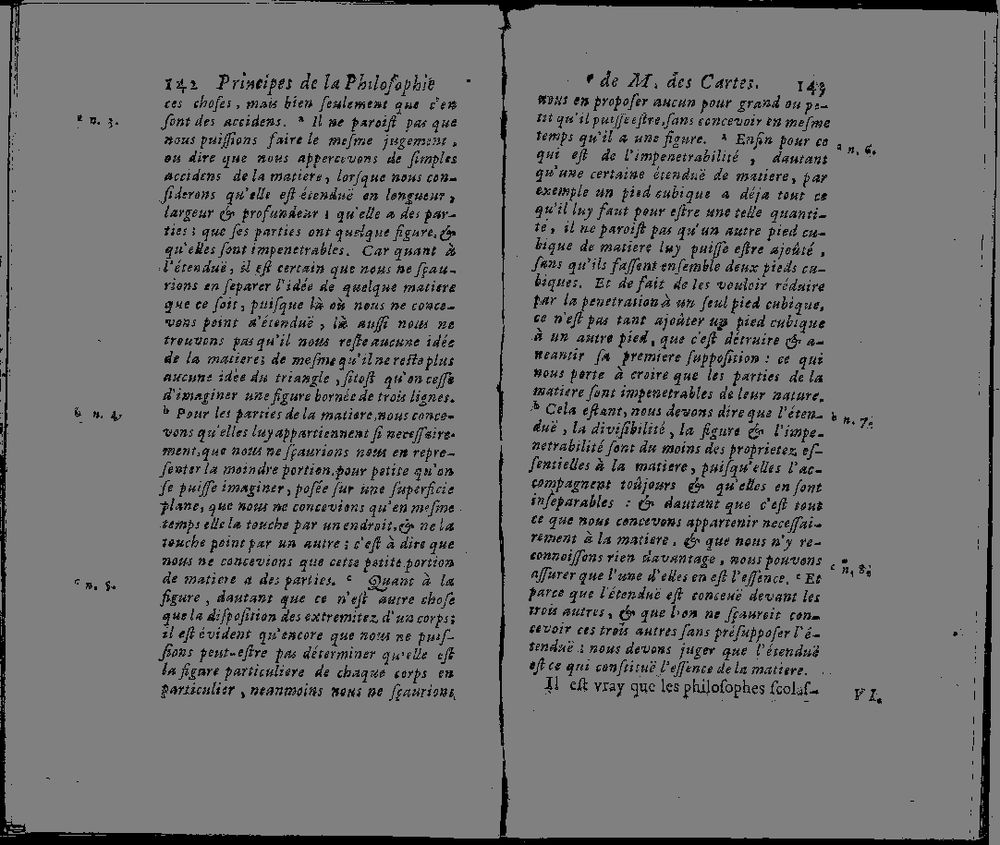 142 Principes de la Philosophie
ces choses, mais bien seulement que c'en
sont des accidens. a Il ne paroist pas que
a n. 3.
nous puissions faire le mesme jugement,
ou dire que nous appercevons de simples
accidens de la matiere, lorsque nous con-
siderons qu'elle est étenduë en longueur,
largeur & profondeur ; qu'elle a des par-
ties ; que ses parties ont quelque figure, &
qu'elles sont impenetrables. Car quant à
l'étenduë, il est certain que nous ne sçau-
rions en separer l'idée de quelque matiere
que ce soit, puisque là où nous ne conce-
vons point d'étenduë, là aussi nous ne
trouvons pas qu'il nous reste aucune idée
de la matiere ; de mesme qu'il ne reste plus
aucune idée du triangle, sitost qu'on cesse
d'imaginer une figure bornée de trois lignes.
b n. 4.
b Pour les parties de la matiere, nous conce-
vons qu'elles luy appartiennent si necessaire-
ment, que nous ne sçaurions nous en repre-
senter la moindre portion, pour petite qu'on
se puisse imaginer, posée sur une superficie
plane, que nous ne concevions qu'en mesme
temps elle la touche par un endroit, & ne la
touche point par un autre ; c'est à dire que
nous ne concevions que cette petite portion
de matiere a des parties. c Quant à la
c n. 5.
figure, dautant que ce n'est autre chose
que la disposition des extremitez d'un corps ;
il est évident qu'encore que nous ne puis-
sions peut-estre pas déterminer qu'elle est
la figure particuliere de chaque corps en
particulier, neanmoins nous ne sçaurions
de M. des Cartes. 143
nous en proposer aucun pour grand ou pe-
tit qu'il puisse estre, sans concevoir en mesme
temps qu'il a une figure. a Enfin pour ce
a n. 6.
qui est de l'impenetrabilité, dautant
qu'une certaine étenduë de matiere, par
exemple un pied cubique a déja tout ce
qu'il luy faut pour estre une telle quanti-
te, il ne paroist pas qu'un autre pied cu-
bique de matiere luy puisse estre ajoûté,
sans qu'ils fassent ensemble deux pieds cu-
biques. Et de fait de les vouloir réduire
par la penetration à un seul pied cubique,
ce n'est pas tant ajoûter un pied cubique
à un autre pied, que c'est détruire & a-
neantir sa premiere supposition : ce qui
nous porte à croire que les parties de la
matiere sont impenetrables de leur nature.
b Cela estant, nous devons dire que l'éten-
b n. 7.
duë, la divisibilité, la figure & l'impe-
netrabilité sont du moins des proprietez es-
sentielles à la matiere, puisqu'elles l'ac-
compagnent toûjours & qu'elles en sont
inseparables : & dautant que c'est tout
ce que nous concevons appartenir necessai-
rement à la matiere, & que nous n'y re-
connoissons rien davantage, nous pouvons
assurer que l'une d'elles en est l'essence. c Et
c n. 8.
parce que l'étenduë est conceuë devant les
trois autres, & que l'on ne sçauroit con-
cevoir ces trois autres sans présupposer l'é-
tenduë : nous devons juger que l'étenduë
est ce qui constituë l'essence de la matiere.
Il est vray que les philosophes scolas-
VI.